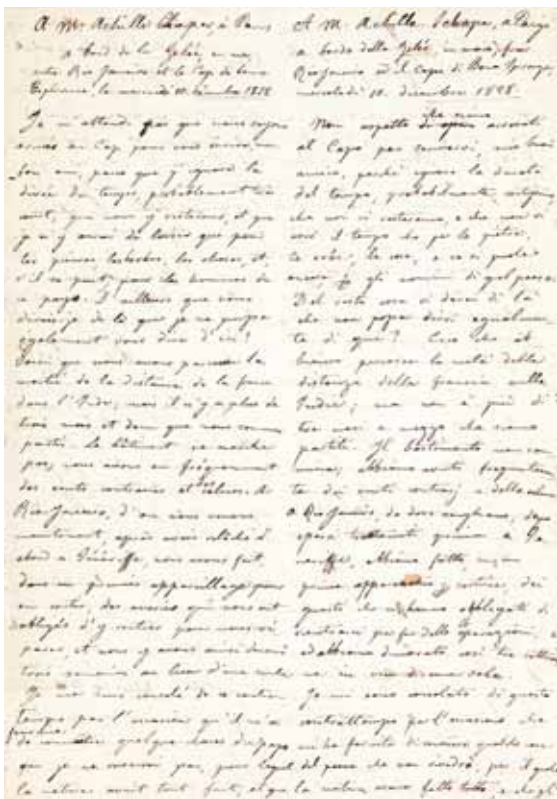 A Mr. Achille Chaper, à Paris
à bord de la Zélée en mer
entre Rio Janeiro et le Cap de bonne
Espérance, le mercredi 10 décembre 1828
Je n'attends pas que nous soyons
arrivés au Cap pour vous écrire, mon
bon ami, parce que j'ignore la
durée du temps, probablement très
court, que nous y resterons, et que
je n'y aurai de loisir que pour
les pierres, les herbes, les choses, et
s'il se peut, pour les hommes de
ce pays. D'ailleurs que vous
dirais-je de là que je ne puisse
également vous dire d'ici?
Voici que nous avons parcouru la
moitié de la distance de la france
dans l'Inde; mais il n'y a plus de
trois mois et demi que nous sommes
partis. Le bâtiment ne marche
pas; nous avons eu fréquemment
des vents contraires et des calmes. A
Rio Janeiro, d'où nous venons
maintenant, après avoir relâché d'
abord à Ténériffe, nous avons fait,
dans un premier appareillage pour
en sortir, des avaries qui nous ont
obligés d'y rentrer pour nous ré-
parer, et nous y avons ainsi demeuré
trois semaines au lieu d'une seule
Je me suis consolé de ce contre
temps par l'occasion qu'il m'a
fournie
de connaître quelque chose du pays
que je ne verrai pas, pour lequel
la nature avait tout fait, et que
A M. Achille Schaper, a Parigi
a bordo della Zelée, in mare, fra
Rio Janeiro ed il Capo di Buona Speranza,
mercoledì 10. dicembre 1828.
Non aspetto che siamo arrivati
al Capo per scrivervi, mio buon
amico, perché ignoro la durata
del tempo, probabilmente
che noi vi resteremo, e che non vi
avrò il tempo che per le pietre,
le cose, e se si puole
ancora gli uomini di quel paese.
Del resto cosa vi direi di là
che non possa dirvi egualmen-
te di qui? Ecco che ab
biamo percorso la metà della
distanza della francia nelle
Indie; ma non è più di
tre mesi e mezzo che siamo
partiti. Il bastimento non cam
mina; abbiamo avuto frequentemen
te dei venti contrarj e delle calme
a Rio Janeiro, da dove venghiamo, dopo
esserci trattenuti prima a Te
neriffe, abbiamo fatto, in un
primo apparecchio per sortire, dei
guasti che ci hanno obbligati di
rientrarci per far delle riparazioni,
ed abbiamo dimorato così tre settima
ne in vece di una sola.
Io mi sono consolato di questo
contrattempo per l'occasione che
mi ha fornito di conoscere qualche cosa
del paese che non vedrò, per il quale
la natura aveva fatto tutto, e che gli